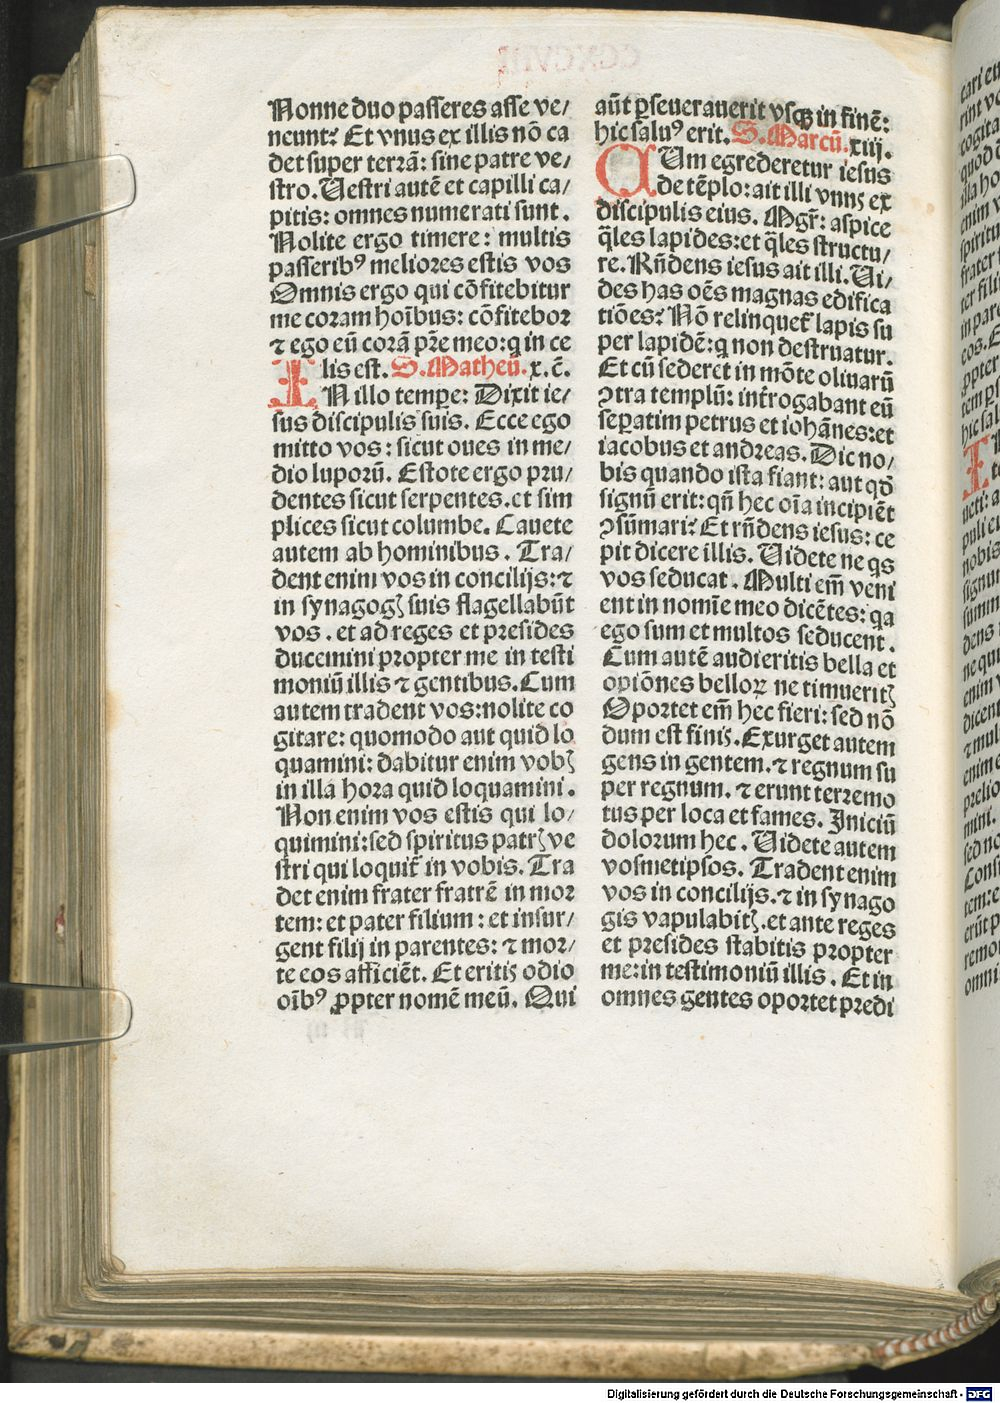 Nonne duo passeres asse ve/
neunt? Et vnus ex illis nō ca
det super terrā: sine patre ve/
stro. Uestri autē et capilli ca/
pitis: omnes numerati sunt.
Nolite ergo timere: multis
passeribꝰ meliores estis vos
Omnis ergo qui cōfitebitur
me coram hoībus: cōfitebor
⁊ ego eū corā pr̄e meo: q̇ in ce
lis est. S. Matheū. x. c̄.
IN illo temꝑe: Dixit ie/
sus discipulis suis. Ecce ego
mitto vos: sicut oues in me/
dio luporū. Estote ergo pru/
dentes sicut serpentes. et sim
plices sicut columbe. Cauete
autem ab hominibus. Tra/
dent enim vos in concilijs: ⁊
in synagogꝭ suis flagellabūt
vos. et ad reges et presides
ducemini propter me in testi
moniū illis ⁊ gentibus. Cum
autem tradent vos: nolite co
gitare: quomodo aut quid lo
quamini: dabitur enim vobꝭ
in illa hora quid loquamini.
Non enim vos estis qui lo/
quimini: sed spiritus patrꝭ ve
stri qui loquit᷑ in vobis. Tra
det enim frater fratrē in mor
tem: et pater filium: et insur/
gent filij in parentes: ⁊ mor/
te eos afficiēt. Et eritis odio
oībꝰ ꝓpter nomē meū. Qui
aūt ꝑseuerauerit vsqꝫ in finē:
hic saluꝰ erit. S. Marcū. xiij.
CUm egrederetur iesus
de tēplo: ait illi vnus ex
discipulis eius. Mgr̄: aspice
q̄les lapides: et q̄les structu/
re. Rn̄dens iesus ait illi. Ui/
des has oēs magnas edifica
tiōes? Nō relinquet᷑ lapis su
per lapidē: q̇ non destruatur.
Et cū sederet in mōte oliuarū
ꝯtra templū: int̄rogabant eū
seꝑatim petrus et iohānes: et
iacobus et andreas. Dic no/
bis quando ista fiant: aut qḋ
signū erit: qn̄ hec oīa incipiēt
ꝯsūmari? Et rn̄dens iesus: ce
pit dicere illis. Uidete ne q̇s
vos seducat. Multi em̄ veni
ent in nomīe meo dicētes: q̇a
ego sum et multos seducent.
Cum autē audieritis bella et
opiōnes belloꝝ ne timueritꝭ
Oportet em̄ hec fieri: sed nō
dum est finis. Exurget autem
gens in gentem. ⁊ regnum su
per regnum. ⁊ erunt terremo
tus per loca et fames. Iniciū
dolorum hec. Uidete autem
vosmetipsos. Tradent enim
vos in concilijs. ⁊ in synago
gis vapulabitꝭ. et ante reges
et presides stabitis propter
me: in testimoniū illis. Et in
omnes gentes oportet predi
Digitalisierung gefördert durch die Deutsche Forschungsgemeinschaft - DFG